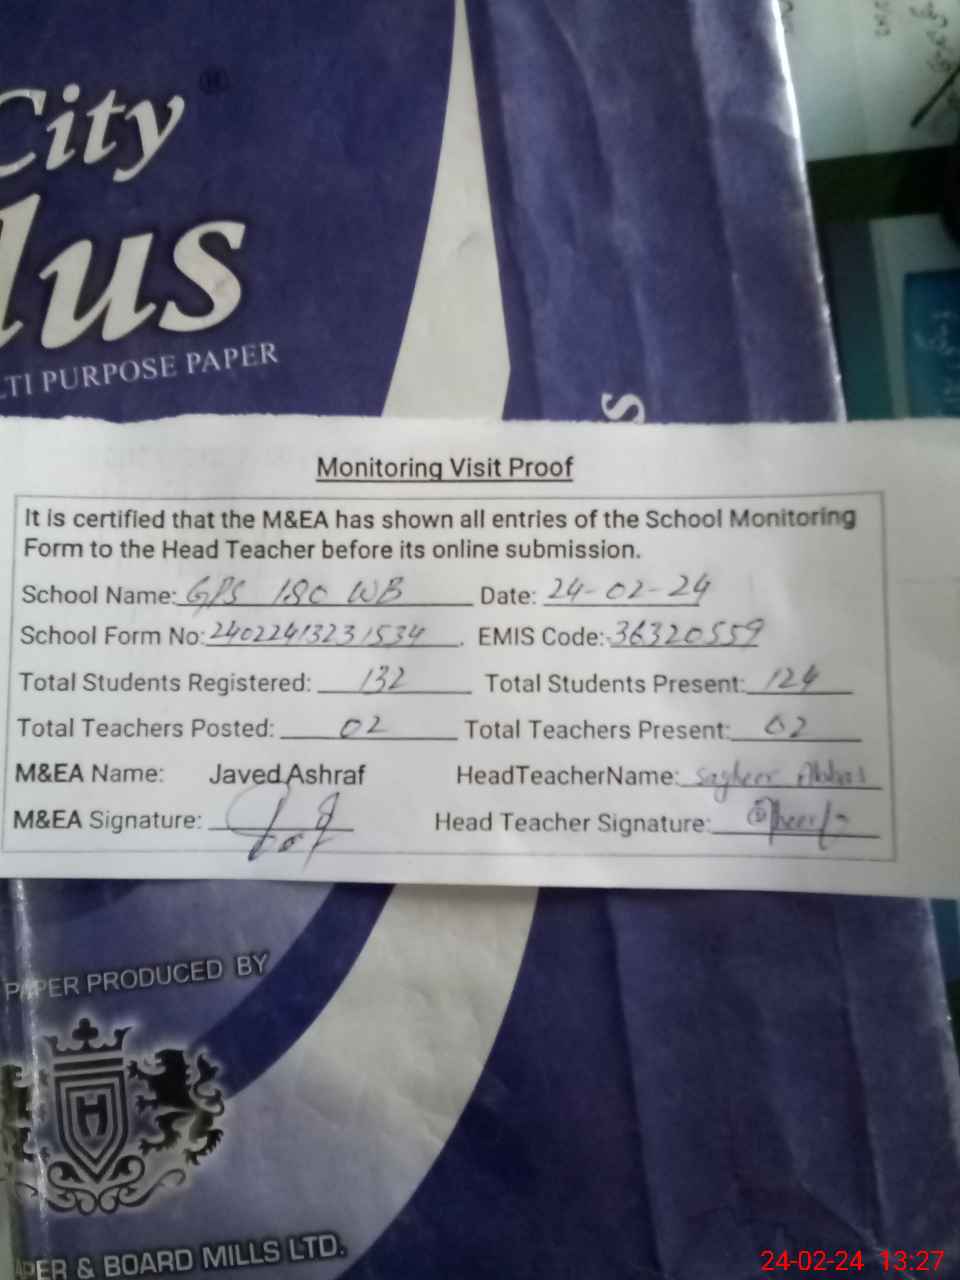 City ®
lus
LTI PURPOSE PAPER
S
Monitoring Visit Proof
It is certified that the M&EA has shown all entries of the School Monitoring
Form to the Head Teacher before its online submission.
School Name: GPS 180 WB Date: 24-02-24
School Form No: 24022413231534. EMIS Code: 36320559
Total Students Registered: 132 Total Students Present: 124
Total Teachers Posted: 02 Total Teachers Present: 02
M&EA Name: Javed Ashraf HeadTeacherName: Sagheer Abbas
M&EA Signature: Head Teacher Signature:
PAPER PRODUCED BY
H
APER & BOARD MILLS LTD.
24-02-24 13:27